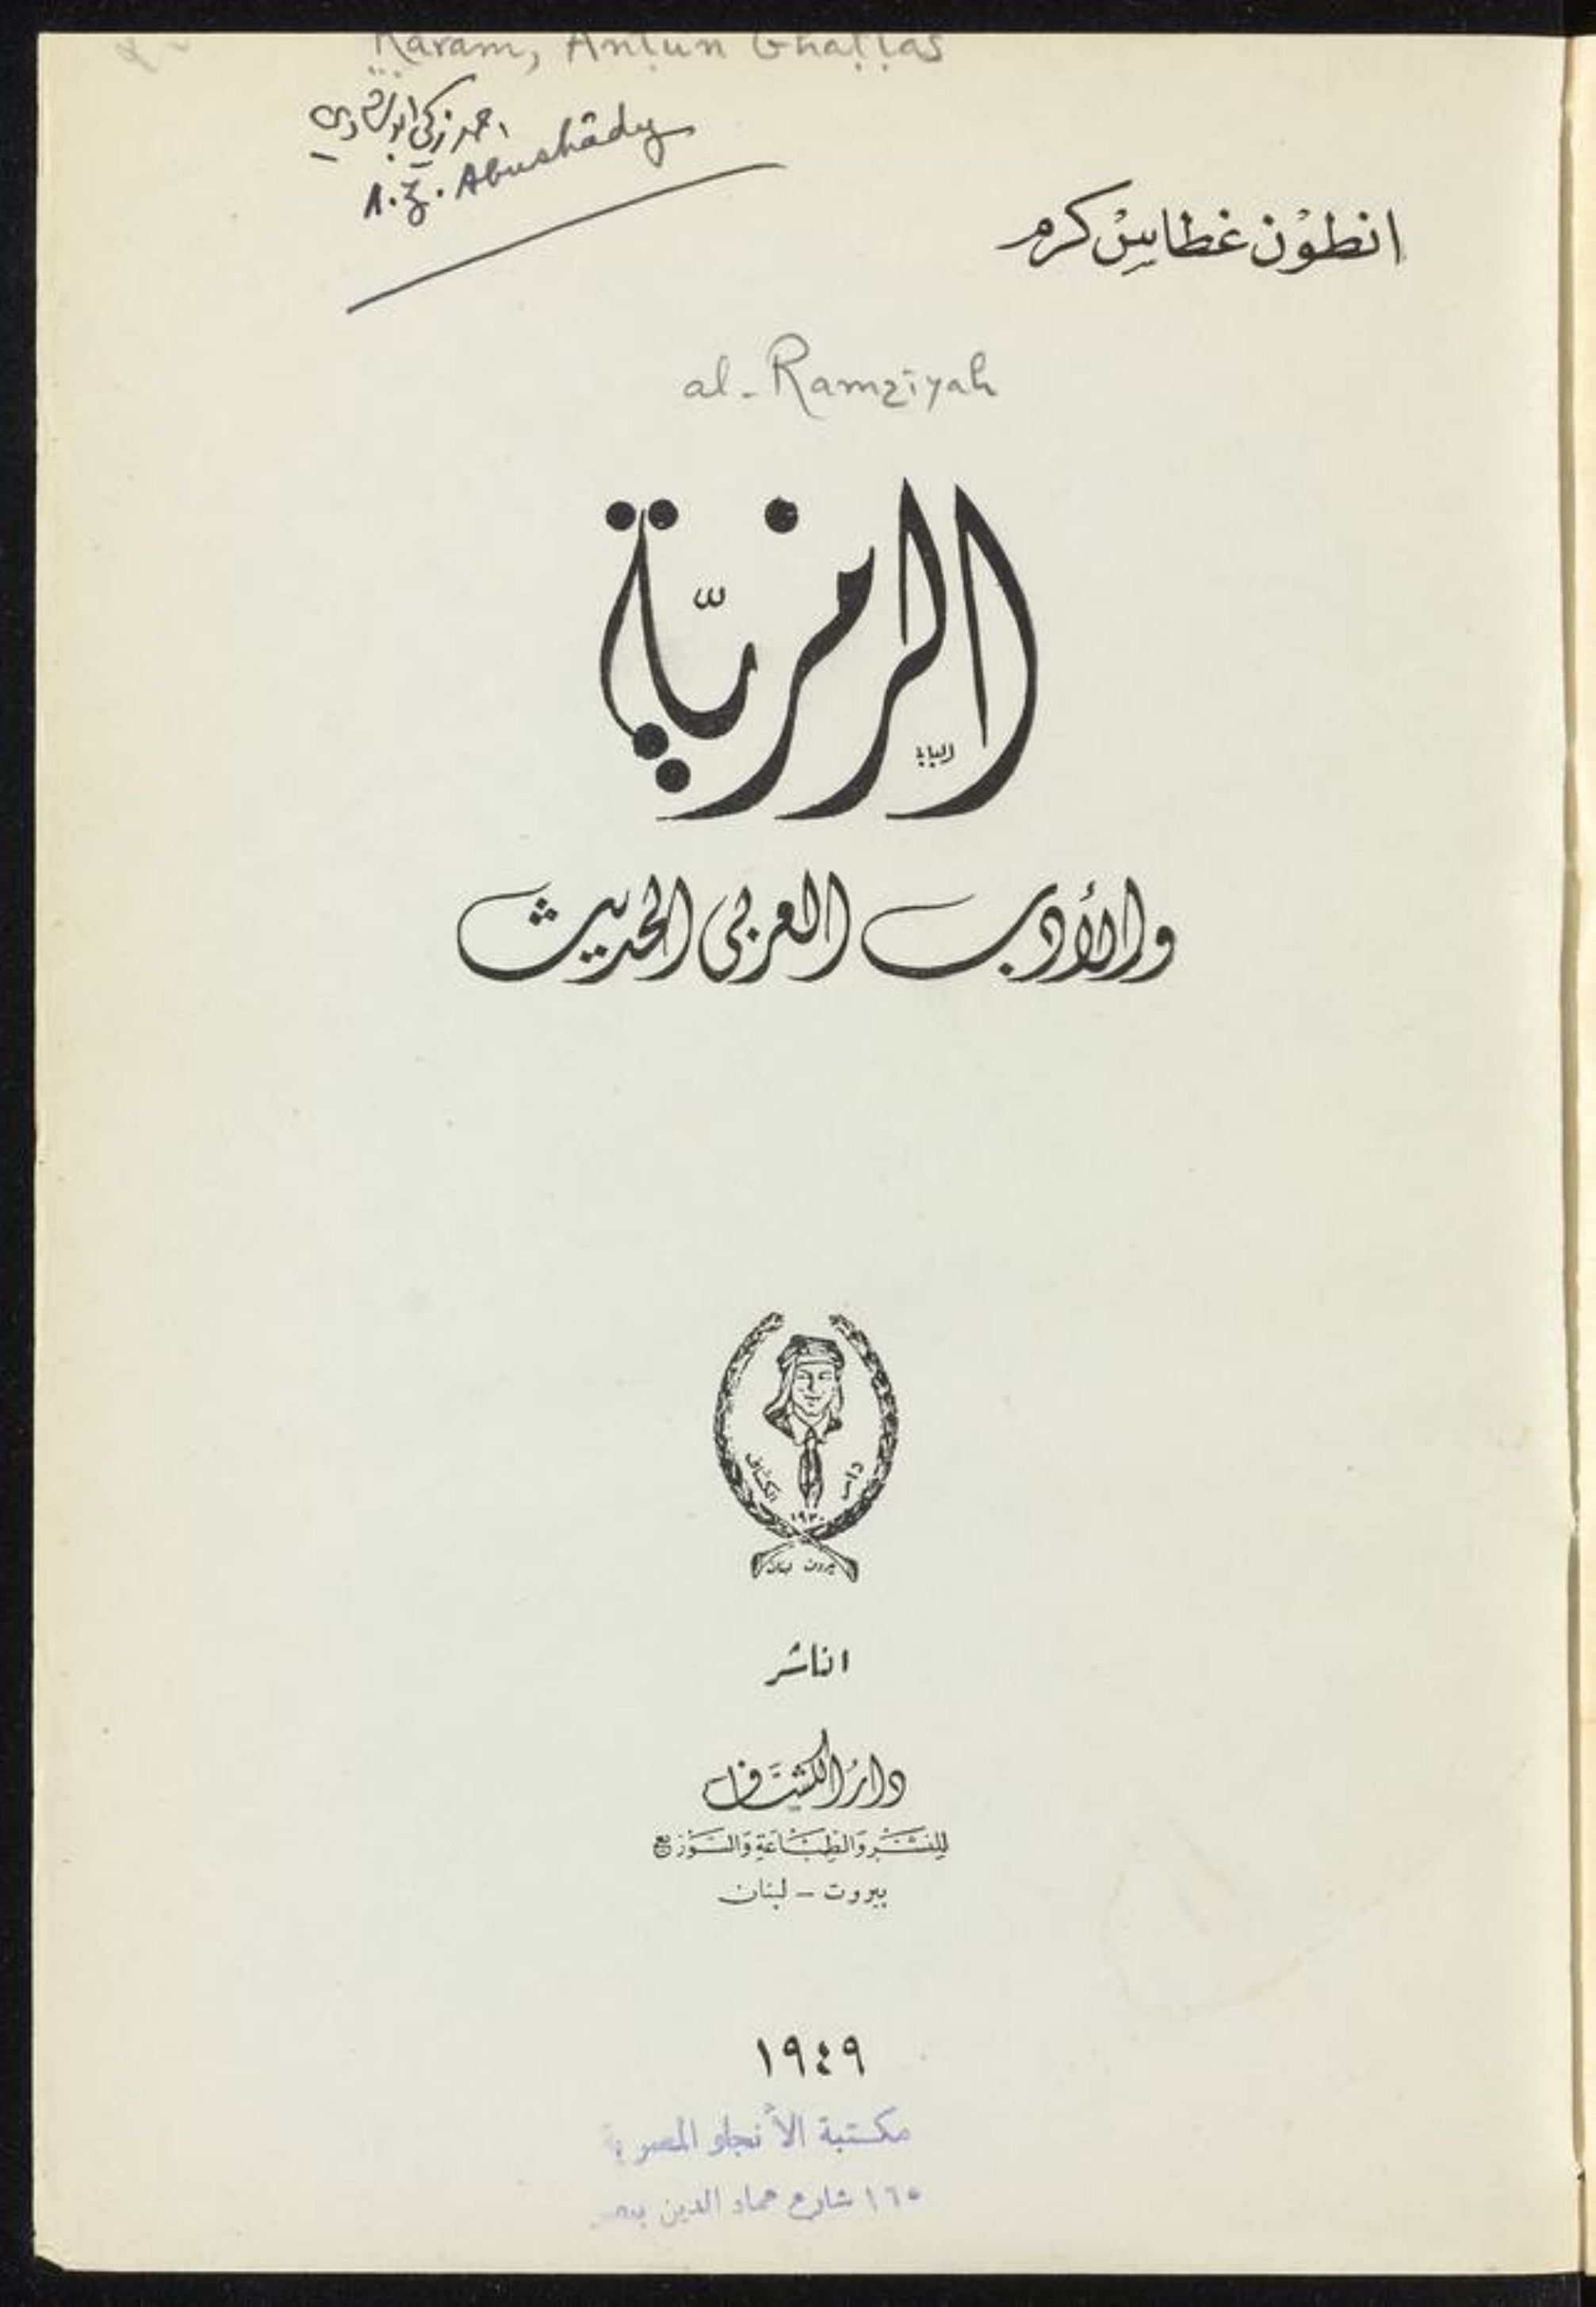 Karam, Anṭun Ghaṭṭas
احمد زكي ابو شادي
A. Z. Abushâdy
انطون غطاس كرم
al-Ramzīyah
الرمزيّة
والأدب العربى الحديث
دار الكشاف
١٩٣٠
بيروت لبنان
الناشر
دار الكشاف
للنشر والطباعة والتوزيع
بيروت - لبنان
١٩٤٩
مكتبة الأنجلو المصرية
١٦٥ شارع عماد الدين بمصر